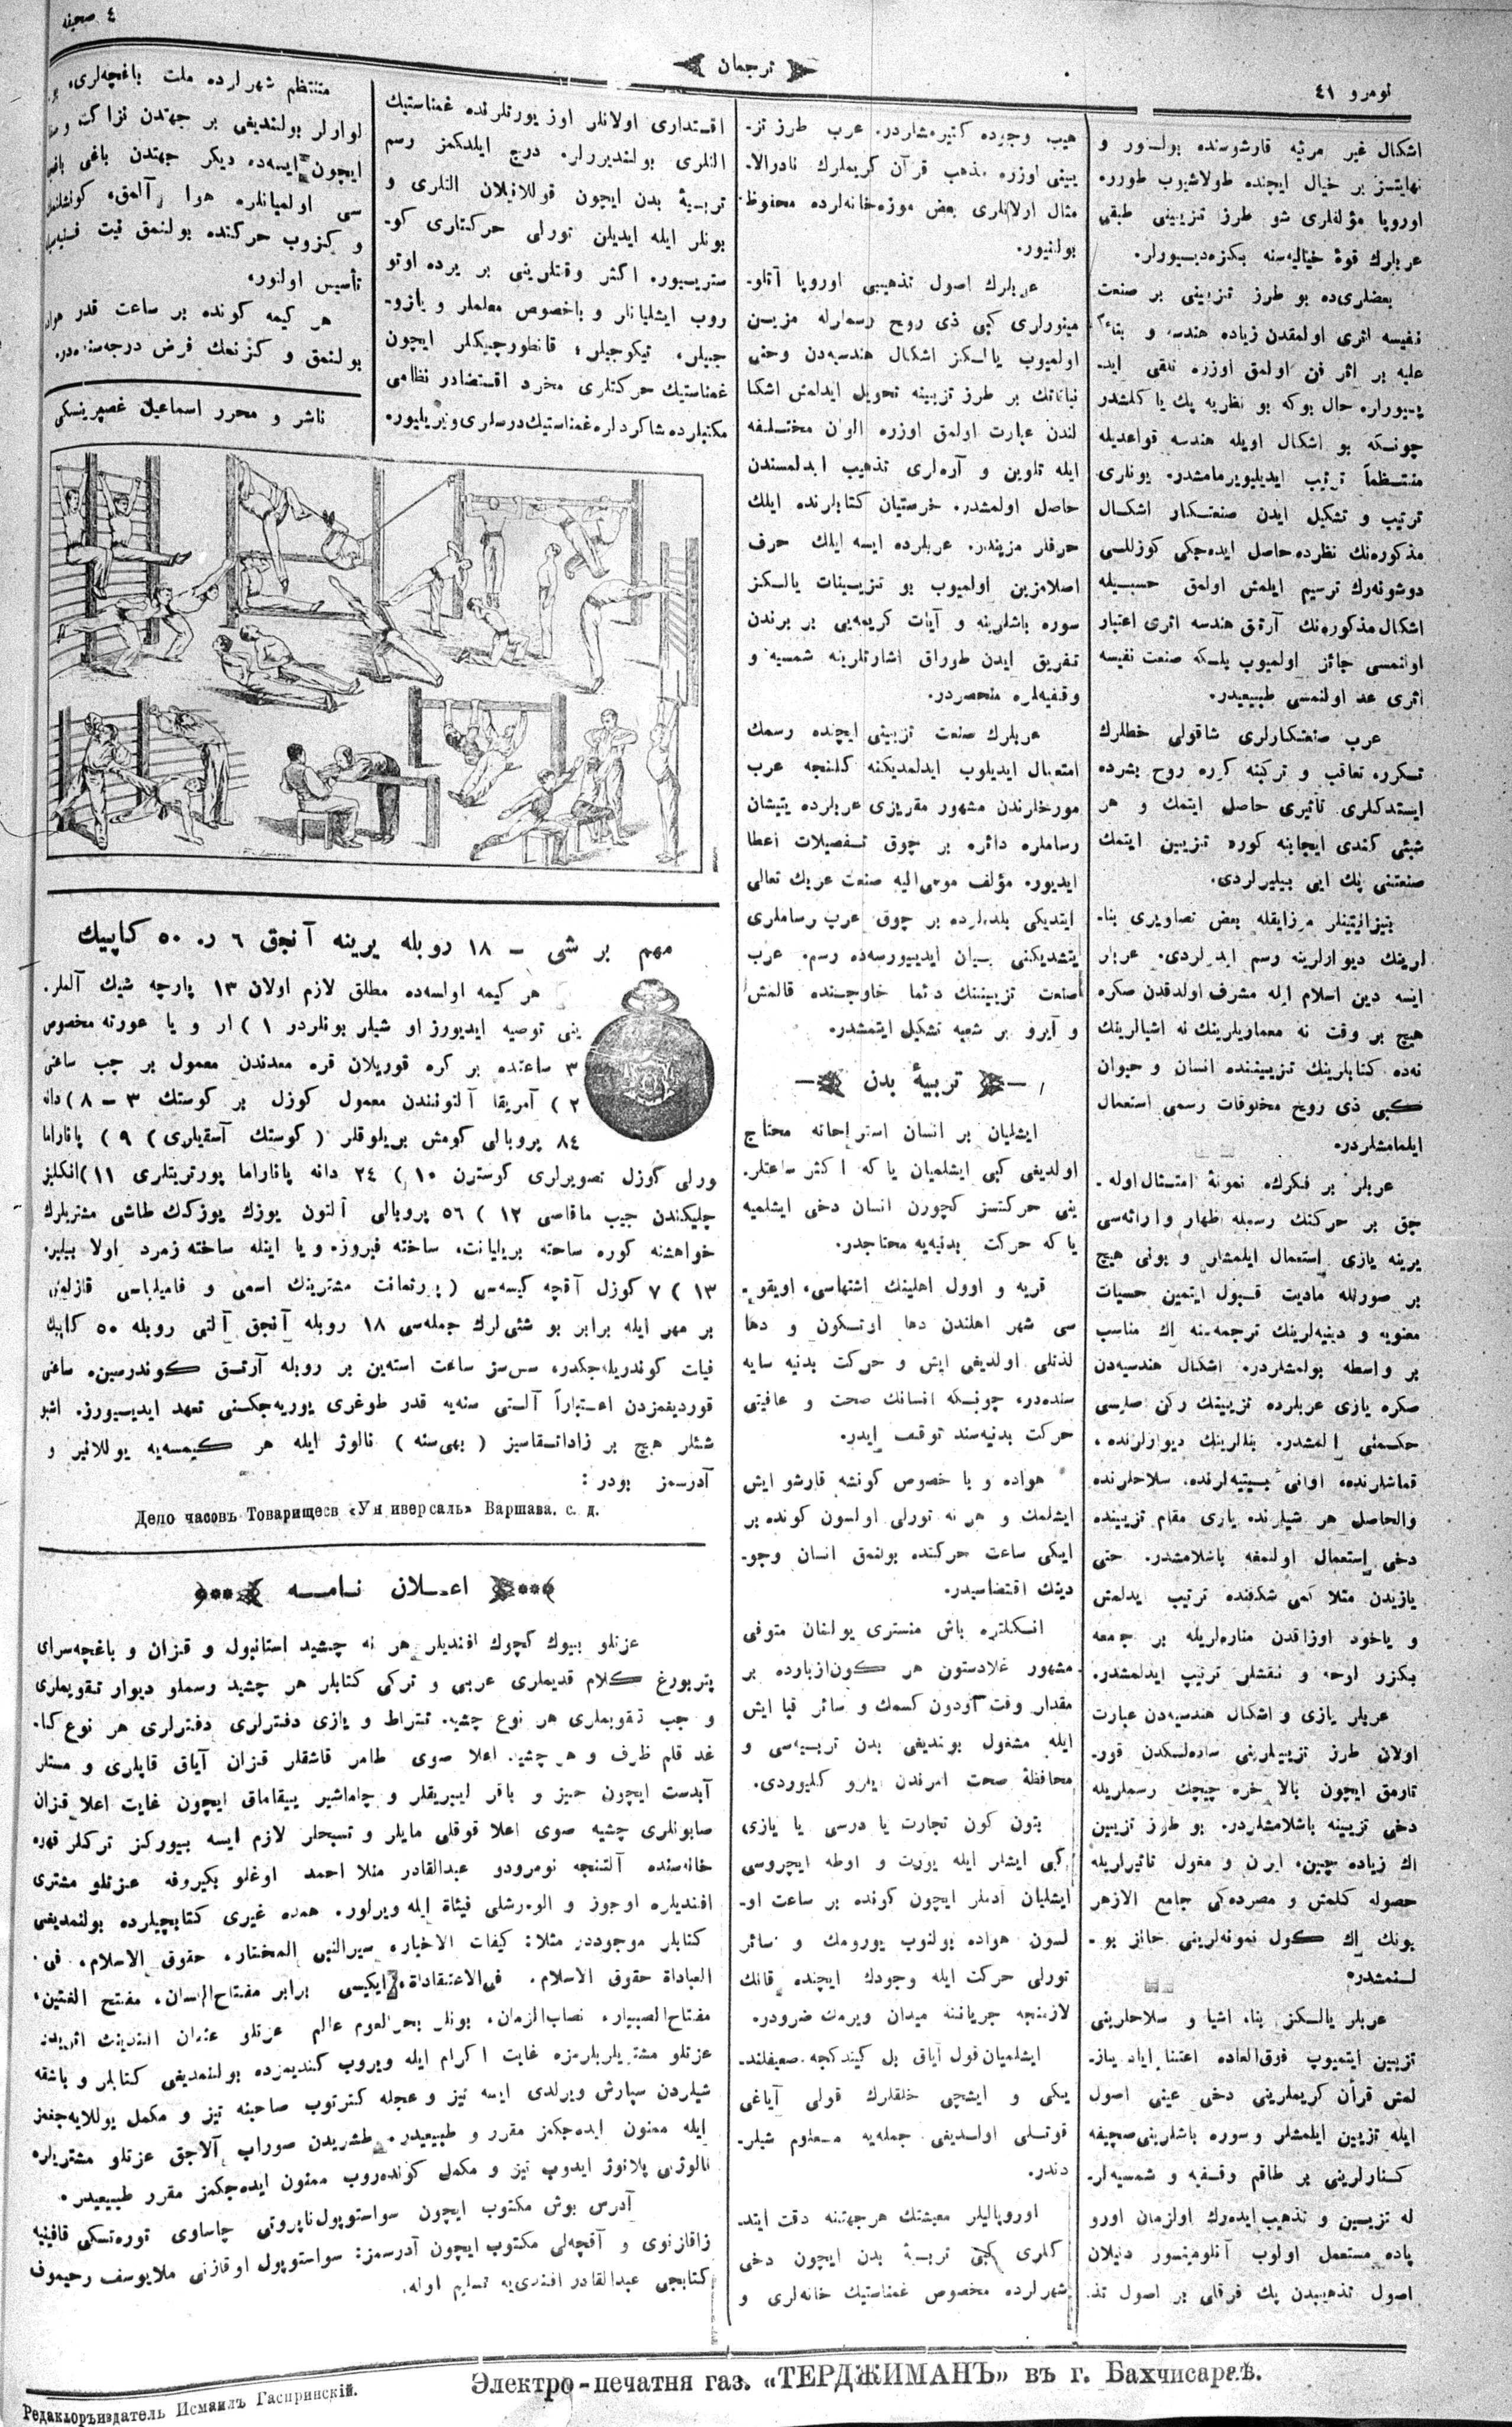 نومرو ٤١
ترجمان
٤ صحیفه
اشكال غیر مرئیه قارشوسنده بولنور و
نهایتسز بر خیال ایچنده طولاشیوب طورر.
اوروپا مؤلفلری شو طرز تزیینی طبقی
عربلرك قوۀ خیالیه‌سنه بكزه‌دییورلر.
بعضلری‌ده بو طرز تزیینی بر صنعت
نفیسه اثری اولمقدن زیاده هندسه و بناءً
علیه بر اثر فن اولمق اوزره تلقی اید-
ییورلر. حال بوكه بو نظریه پك یاكلشدر
چونكه بو اشكال اویله هندسه قواعدیله
منتظماً ترتیب ایدیلیویرمامشدر. بونلری
ترتیب و تشكیل ایدن صنعتكار اشكال
مذكوره‌نك نظرده حاصل ایده‌جكی كوزللكی
دوشونه‌رك ترسیم ایلمش اولمق حسبیله
اشكال مذكوره‌نك آرتق هندسه اثری اعتبار
اولنمسی جائز اولمیوب بلكه صنعت نفیسه
اثری عد اولنمسی طبیعیدر.
عرب صنعتكارلری شاقولی خطلرك
تكرر، تعاقب و تركیبنه كوره روح بشرده
ایستدكلری تأثیری حاصل ایتمك و هر
شیئی كندی ایجابنه كوره تزیین ایتمك
صنعتنی پك ایی بیلیرلردی.
بیزانتینلر موزایقله بعض تصاویری بنا-
لرینك دیوارلرینه رسم ایدرلردی. عربلر
ایسه دین اسلام ایله مشرف اولدقدن صكره
هیچ بر وقت نه معمارییلرینك نه اشیالرینك
نه‌ده كتابلرینك تزییننده انسان و حیوان
كبی ذی روح مخلوقات رسمی استعمال
ایلمامشلردر.
عربلر بر فكرك، نمونۀ امتثال اوله-
جق بر حركتك رسمله اظهار و ارائه‌سی
یرینه یازی استعمال ایلمشلر و بونی هیچ
بر صورتله مادیت قبول ایتمین حسیات
معنویه و دینیه‌لرینك ترجمه‌سنه اك مناسب
بر واسطه بولمشلردر. اشكال هندسیه‌دن
صكره یازی عربلرده تزییناتك ركن اصلیسی
حكمنی آلمشدر. بنالرینك دیوارلرنده،
قماشلرنده، اوانی بیتیه‌لرنده، سلاحلرنده
والحاصل هر شیلرنده یازی مقام تزییننده
دخی استعمال اولنمغه باشلامشدر. حتی
یازیدن مثلا كمی شكلنده ترتیب ایدلمش
و یاخود اوزاقدن مناره‌لریله بر جامعه
بكزر لوحه و نقشلر ترتیب ایدلمشدر.
عربلر یازی و اشكال هندسیه‌دن عبارت
اولان طرز تزیینلرینی ساده‌لكدن قور-
تارمق ایچون بالاخره چیچك رسملریله
دخی تزیینه باشلامشلردر. بو طرز تزیین
اك زیاده چین، ایران و مغول تاثیرلریله
حصوله كلمش و مصرده‌كی جامع الازهر
بونك اك كوزل نمونه‌لرینی حائز بو-
لنمشدر.
عربلر یالكز بنا، اشیا و سلاحلرینی
تزیین ایتمیوب فوق‌العاده اعتنا ایله یاز-
لمش قرآن كریملرینی دخی عینی اصول
ایله تزیین ایلمشلر و سوره باشلرینی صحیفه
كنارلرینی بر طاقم وقفیه و شمسیه‌لر-
له تزیین و تذهیب ایده‌رك اولزمان اورو
پاده مستعمل اولوب آنلومینور دنیلان
اصول تذهیبدن پك فرقلی بر اصول تذ
هیب وجوده كتیرمشلردر. عرب طرز تز-
یینی اوزره مذهب قرآن كریملرك نادرالا-
مثال اولانلری بعض موزه‌خانه‌لرده محفوظ
بولنیور.
عربلرك اصول تذهیبی اوروپا آنلو-
مینورلری كبی ذی روح رسملرله مزین
اولمیوب یالكز اشكال هندسیه‌دن وحتی
نباتاتك بر طرز تزیینه تحویل ایدلمش اشكا
لندن عبارت اولمق اوزره الوان مختلفه
ایله تلوین و آره‌لری تذهیب ایدلمسندن
حاصل اولمشدر. خرستیان كتابلرنده ایلك
حرفلر مزیندر. عربلرده ایسه ایلك حرف
اصلا مزین اولمیوب بو تزیینات یالكز
سوره باشلرینه و آیات كریمه‌یی بر برندن
تفریق ایدن طوراق اشارتلرینه شمسیه و
وقفیه‌لره منحصردر.
عربلرك صنعت تزیینی ایچنده رسمك
استعمال ایدیلوب ایدلمدیكنه كلنجه عرب
مورخلرندن مشهور مقریزی عربلرده یتیشان
رساملره دائره بر چوق تفصیلات اعطا
ایدیور. مؤلف مومی‌الیه صنعت عربك تعالی
ایتدیكی بلده‌لرده بر چوق عرب رساملری
یتشدیكنی بیان ایدییورسه‌ده رسم، عرب
صنعت تزیینتك دائما خارجنده قالمش
و آیرو بر شعبه تشكیل ایتمشدر.
تربیۀ بدن
ایشلیان بر انسان استراحاته محتاج
اولدیغی كبی ایشلمیان یا كه اكثر ساعتلر.
ینی حركتسز كچورن انسان دخی ایشلمیه
یا كه حركت بدنیه‌یه محتاجدر.
قریه و اوول اهلینك اشتهاسی، اویقو-
سی شهر اهلندن دها اوتكون و دها
لذتلی اولدیغی ایش و حركت بدنیه سایه
سنده‌در، چونكه انسانك صحت و عافیتی
حركت بدنیه‌سند توقف ایدر.
هواده و با خصوص كونشه قارشو ایش
ایشلمك و هر نه تورلی اولسون كونده بر
ایكی ساعت حركتده بولنمق انسان وجو-
دینك اقتضاسیدر.
انكلتره باش منستری بولنان متوفی
مشهور غلادستون هر كون ازبارده بر
مقدار وقت اودون كسمك و سائر قبا ایش
ایله مشغول بولندیغی بدن تربیه‌سی و
محافظۀ صحت امرندن ایلرو كلیوردی.
بتون كون تجارت یا درسی یا یازی
كبی ایشلر ایله یورت و اوطه ایچروسی
ایشلیان آدملر ایچون كونده بر ساعت او-
لسون هواده بولنوب یورومك و سائر
تورلی حركت ایله وجودك ایچنده قانك
لازمنجه جریاننه میدان ویرمك ضروردر.
ایشلمیان قول آیاق بل كیندكجه ضعیفلند-
یكی و ایشچی خلقلرك قولی آیاغی
قوتلی اولدیغی جمله‌یه معلوم شیلر-
دندر.
اوروپالیلر معیشتك هر جهتنه دقت ایتد-
كلری كبی تربیۀ بدن ایچون دخی
شهرلرده مخصوص غمناستیك خانه‌لری و
اقتداری اولانلر اوز یورتلرنده غمناستیك
النلری بولندیررلر. درج ایلدكمز رسم
تربیۀ بدن ایچون قوللانیلان النلری و
بونلر ایله ایدیلن تورلی حركتلری كو-
ستریبور. اكثر وقتلرینی بر یرده اوتو
روب ایشلیانلر و باخصوص معلملر و یازو-
جیلر، تیكوجیلر، قانطورجیكلر ایچون
غمناستیك حركتلری مخرد اقتضادر نظامی
مكتبلرده شاكردلره غمناستیك درسلری ویریلیور.
منتظم شهرلرده ملت باغچه‌لری،
لوارلر بولندیغی بر جهتدن نزاكت
ایچون ایسه‌ده دیكر جهتدن باغی
سی اولمیانلره هوا آلمق، كونشلنمك
و كزوب حركتده بولنمق نیت
تأسیس اولنور.
هر كیمه كونده بر ساعت قدر
بولنمق و كزنمك فرض درجه‌سنده‌در.
ناشر و محرر اسماعیل غصپرینسكی
مهم بر شی – ١٨ روبله یرینه آنجق ٦ ر. ٥٠ كاپیك
هر كیمه اولسه‌ده مطلق لازم اولان ١٣ پارچه شیك آلملر.
ینی توصیه ایدیورز او شیلر بونلردر ١ ) ار و یا عورته مخصوص
٣ ساعتده بر كره قوریلان قره معدندن معمول بر جب ساعتی
٢ ) آمریقا آلتونندن معمول كوزل بر كوستك ٣ – ٨ ) دانه
٨٤ پروبالی كومش بریلوقلر ( كوستك آسقیلری ) ٩ ) پاناراما
ورلی كوزل تصویرلری كوسترن ١٠ ) ٢٤ دانه پاناراما پورتریتلری ١١ ) انكلیز
چلیكندن جیب ماقاصی ١٢ ) ٥٦ پروبالی آلتون یوزك یوزكك طاشی مشتریلرك
خواهشنه كوره ساخته بریلیانت، ساخته فیروزه و یا ایتله ساخته زمرد اولا بیلیر.
١٣ ) ٧ كوزل آقچه كیسه‌سی ( پرتمانت مشترینك اسمی و فامیلیاسی قازلمش
بر مهر ایله برابر بو شئی لرك جمله‌سی ١٨ روبله آنجق آلتی روبله ٥٠ كاپیك
فیات كوندریله‌جكدر، سس‌سز ساعت استه‌ین بر روبله آرتق كوندرسین. ساعتی
قوردیغمزدن اعتباراً آلتی سنه‌یه قدر طوغری یوریه‌جكنی تعهد ایدییورز. اشبو
شئلر هیچ بر زاداتقاسیز ( بهی‌سنه ) نالوژ ایله هر كیمسه‌یه یوللانیر و
آدرسمز بودر :
Депо часовъ Товарищесв «Универсаль» Варшава. с. д.
اعلان نامه
عزتلو بیوك كچوك افندیلر هر نه چشید استانبول و قزان و باغچه‌سرای
پتربورغ كلام قدیملری عربی و تركی كتابلر هر چشید رسملو دیوار تقویملری
و جب تقویملری هر نوع چشید. تتراط و یازی دفترلری دفترلری هر نوع كا.
غد قلم ظرف و هر چشید اعلا صوی طامر قاشقلر قزان آیاق قاپلری و مستلر
آبدست ایچون جیز و باقر لیبریقلر و چاماشیر ییقاماق ایچون غایت اعلا قزان
صابونلری چشید صوی اعلا قوقلی مایلر و تسبحلر لازم ایسه بیورکز تركلر قهوه
خانه‌سنده آلتنجه نومرودو عبدالقادر منلا احمد اوغلو بكیروفه عزتلو مشتری
افندیلره اوجوز و الویرشلی فیئاة ایله ویرلور. همده غیری كتابچیلرده بولنمدیغی
كتابلر موجوددر مثلا: كیفات الاخبار، سیرالنبی المختار، حقوق الاسلام، فی
العباداة حقوق الاسلام. فی‌الاعتقاداة، ایكیسی برابر مفتاح‌اللسان، مفتح الغتین،
مفتاح‌الصبیار، نصاب‌الزمان، بونلر بحرالعوم عالم عزتلو
عزتلو مشتریلریلرمزه غایت اكرام ایله ویروب كندیمزده بولنمدیغی كتابلر و باشقه
شیلردن سپارش ویرلدی ایسه تیز و عجله كترتوب صاحبنه تیز و مكمل یوللایه‌جغمز
ایله ممنون ایده‌جكمز مقرر و طبیعیدر. طشریدن صوراب آلاجق عزتلو مشتریلره
نالوژی پلاتوژ ایدوب تیز و مكمل كونده‌روب ممنون ایده‌جكمز مقرر طبیعیدر.
آدرس بوش مكتوب ایچون سواستوپول ناپروتی چاساوی توره‌تسكی قافینیه
زاقازنوی و آقچه‌لی مكتوب ایچون آدرسمز: سواستوپول اوقازنی ملا یوسف رحیموف
كتابجی عبدالقادر افندی‌یه تسلیم اوله.
Электро-печатня газ. «ТЕРДЖИМАНЪ» въ г. Бахчисараѣ.
Редакторъиздатель Исмаилъ Гаспринскій.